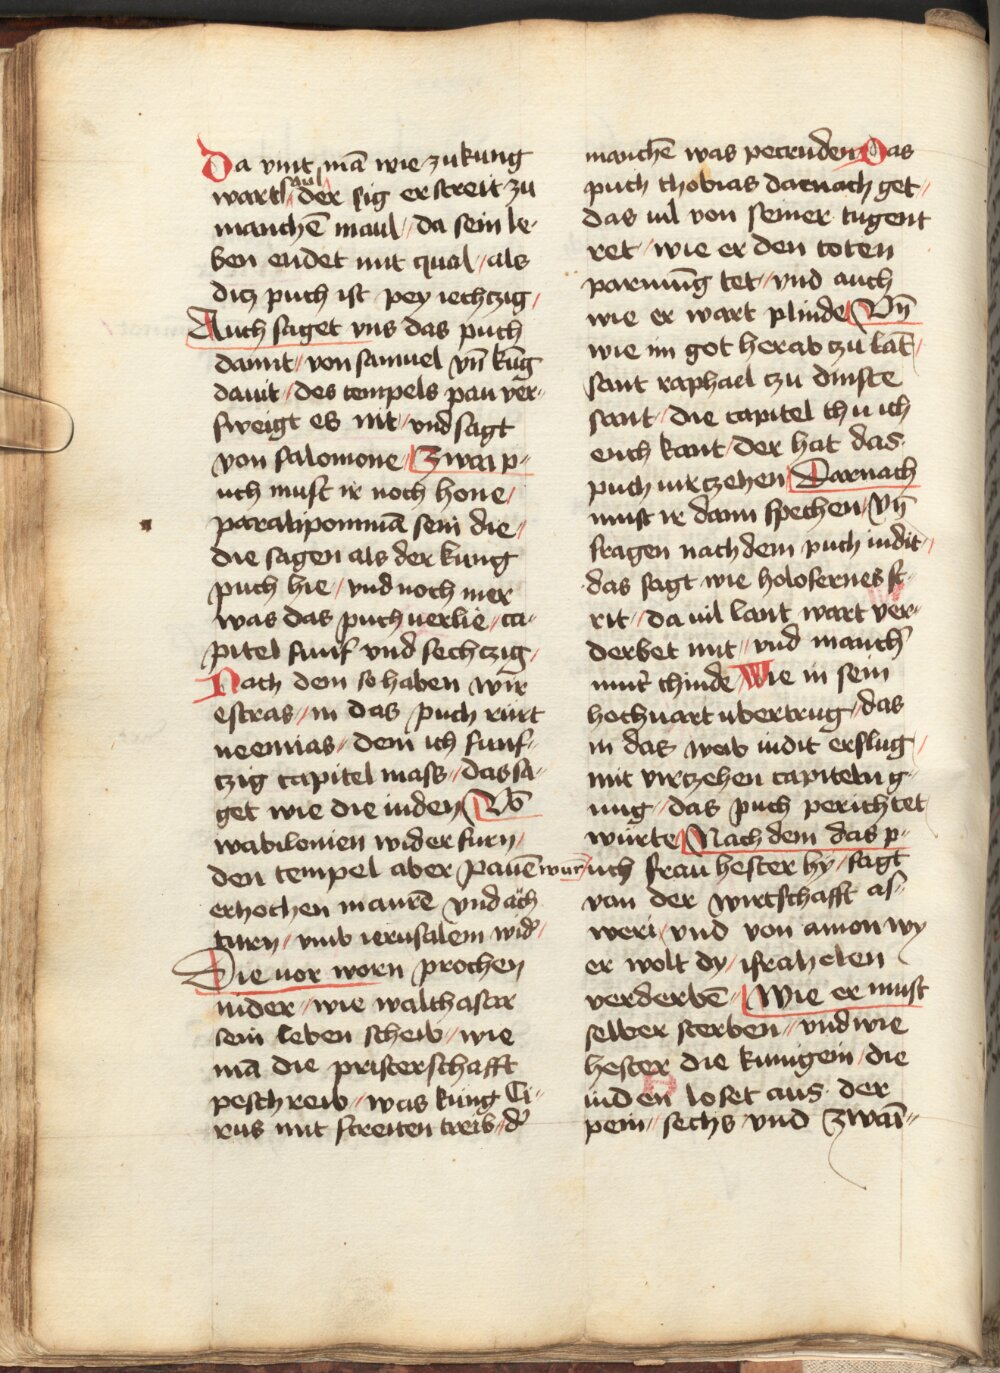 Da vint mā wie zu kung
wart saul der sig er streit zu
manchē maul / da sein le-
ben endet mit qual / als
ditz puch ist pey sechtzig /
Auch saget vns das puch
damit / von samuel vn̄ kūg
dauit / des tempels pau ver-
sweigt es nit / vnd sagt
von salomone / Zwai p-
uch must ir noch hone /
paralipominā sein die /
die sagen als der kung
puch hie / vnd noch mer
was das puch verlie / ca-
pitel funf vnd sechtzig /
Nach dem so haben wir
esdras / in das puch rürt
neemias / dem ich funf-
tzig capitel mass / das sa-
get wie die iuden / Vō
wabilonien wider furn /
den tempel aber pauē wurn /
erhochen maurē vnd ach
turn / vmb ierusalem wid' /
Die vor worn prochen
nider / wie walthasar
sein leben scheib / wie
mā die pristerschafft
peschreib / was kūng Ci-
rus mit streiten treib / d'
manchē was petruden / Das
puch thobias darnach get /
das vil von seiner tugent
ret / wie er den toten
parmūg tet / vnd auch
wie er wart plinde / Vn̄
wie im got herab zu lāt /
sant raphael tzu dinste
sant / die capitel thu ich
euch kant / der hat das
puch virtzehen / Darnach
must ir dann spechen / Vn̄
fragen nach dem puch iudit /
das sagt wie holofernes st-
rit / da vil lant wart ver-
derbet mit / vnd manch'
mut' chinde / Wie in sein
hochuart vbertrug / das
in das weib iudit erslug /
mit virtzehen capiteln g-
nug / das puch perichtet
würte / Nach dem das p-
uch frau hester hy / sagt
van der wirtschafft as-
weri / vnd von amon wy
er wolt dy / israhelen
verderbē / Wie er must
selber sterben / vnd wie
hester die kunigein / die
iuden loset aus der
pein / sechs vnd zwai-